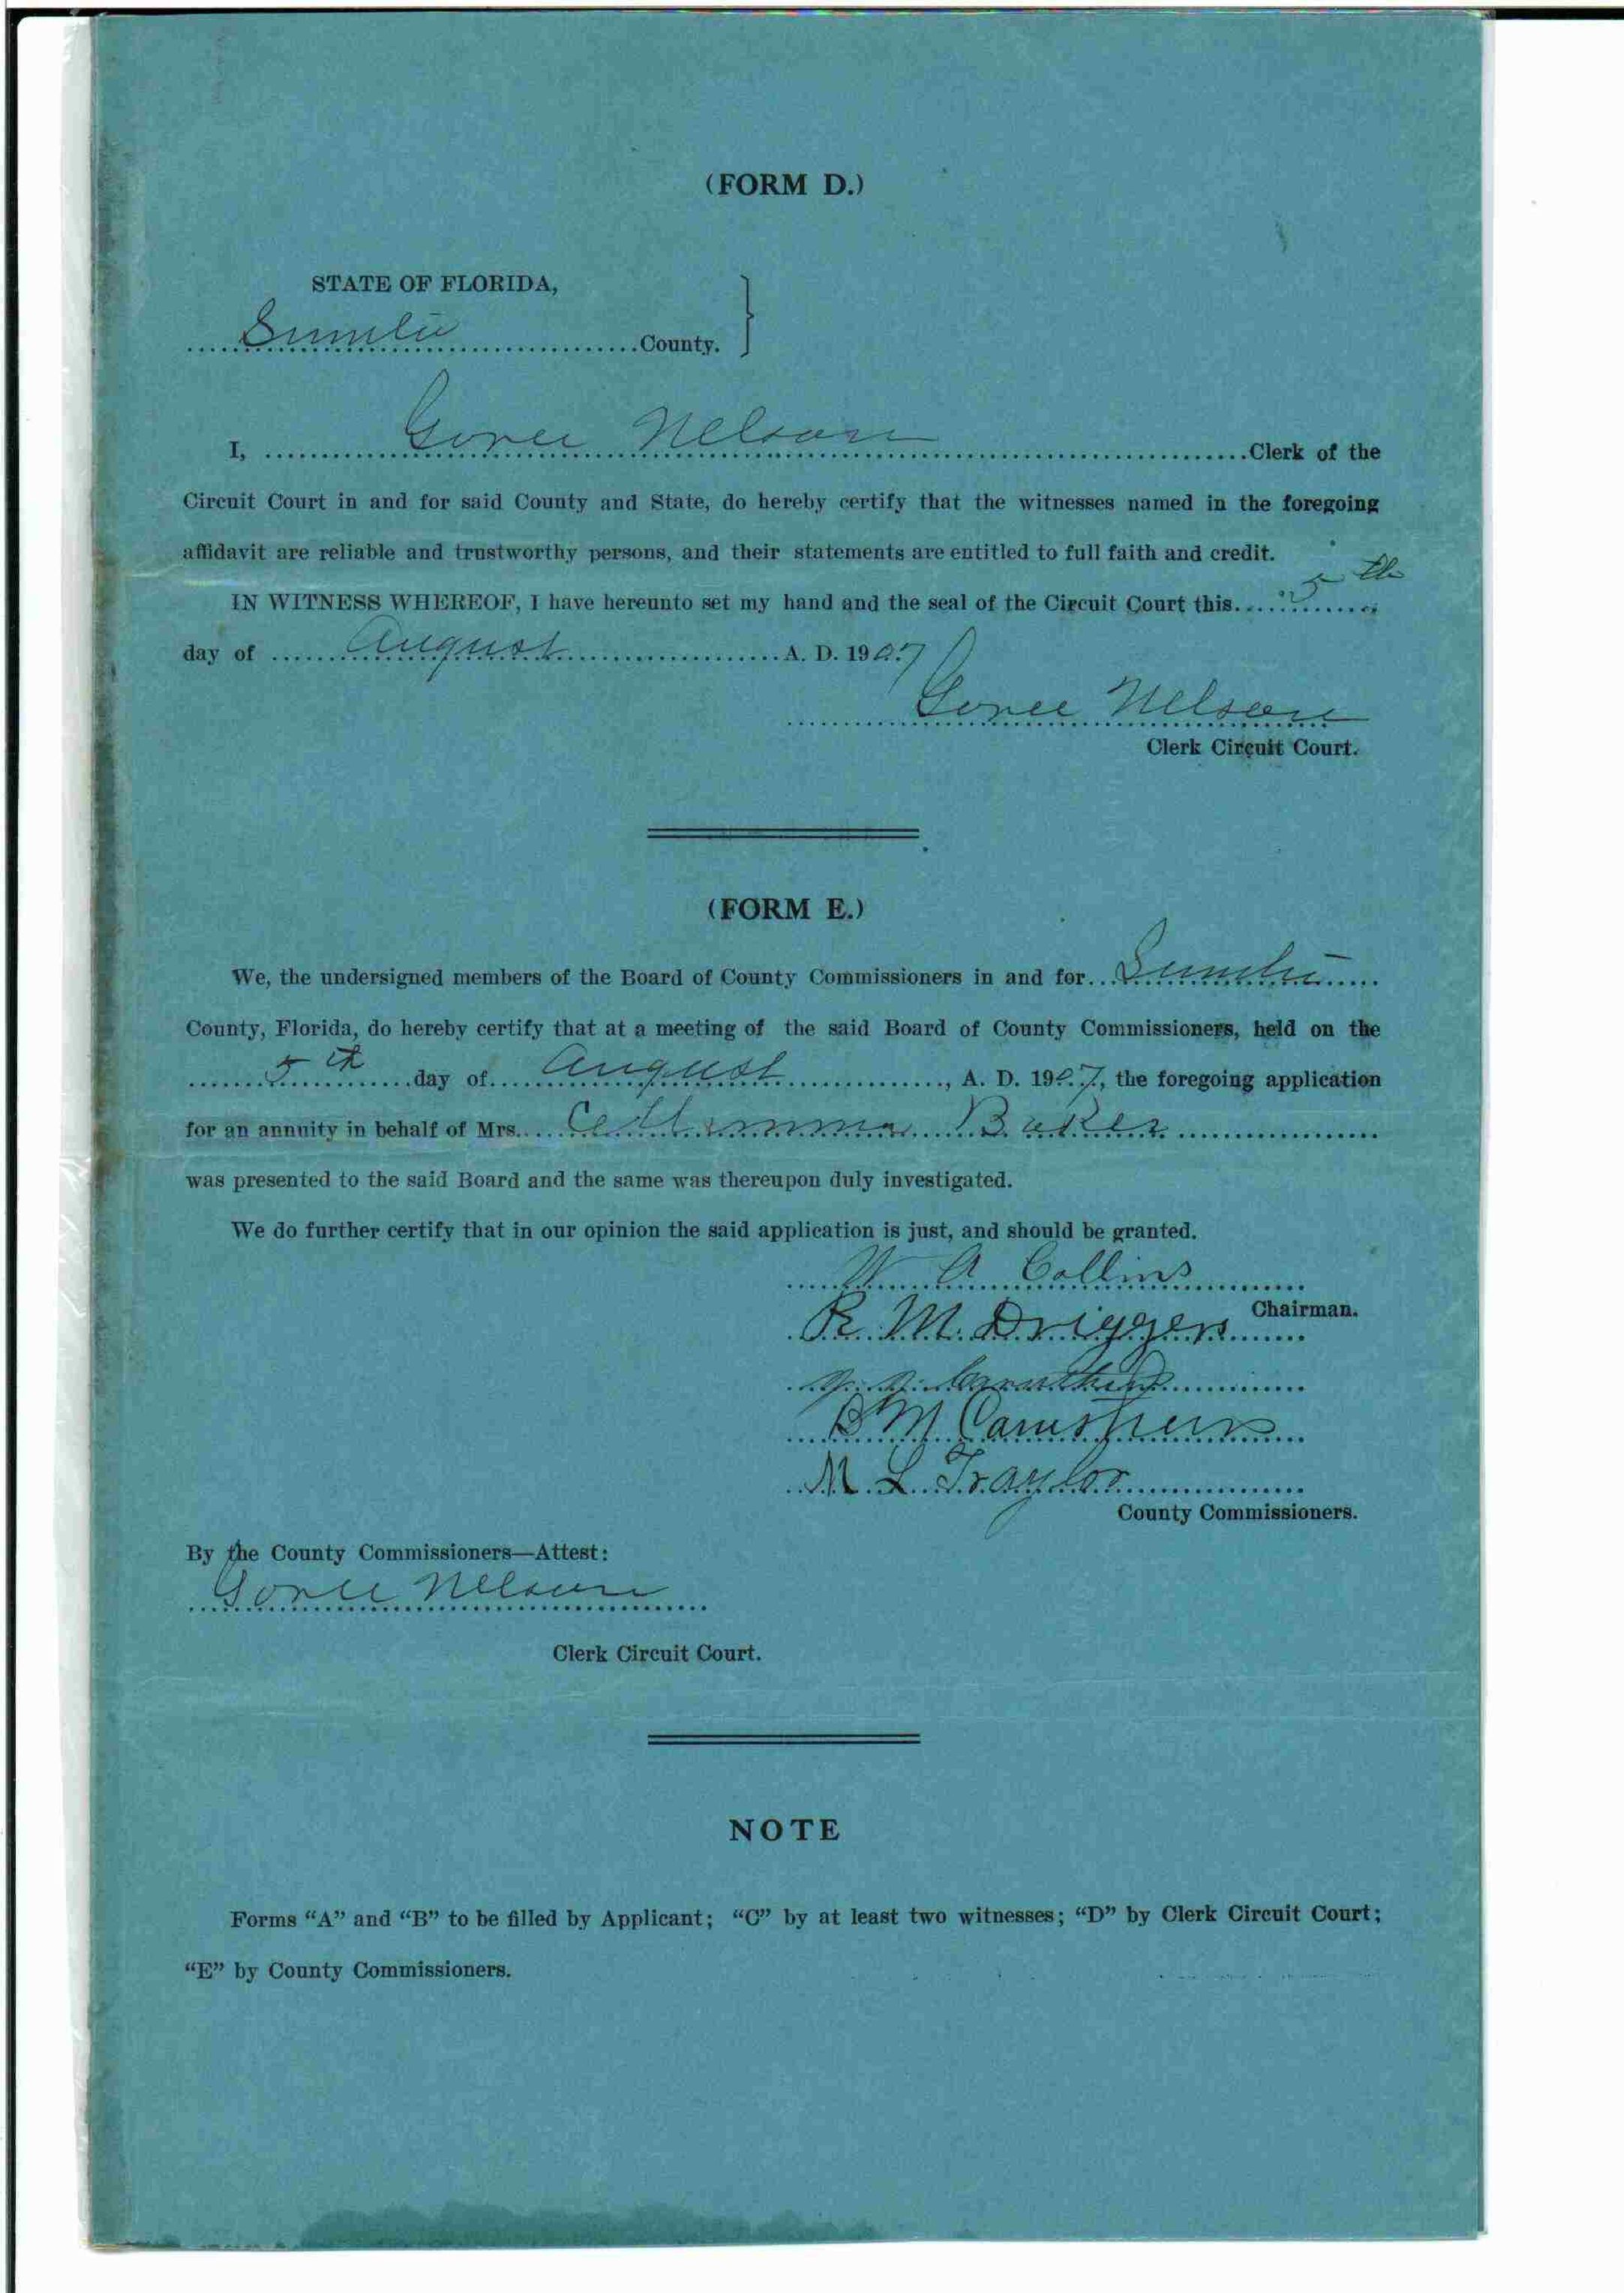 (FORM D.)
STATE OF FLORIDA,
Sumter County.
I, Goree Nelson Clerk of the
Circuit Court in and for said County and State, do hereby certify that the witnesses named in the foregoing
affidavit are reliable and trustworthy persons, and their statements are entitled to full faith and credit.
IN WITNESS WHEREOF, I have hereunto set my hand and the seal of the Circuit Court this 5th
day of August A. D. 1907
Goree Nelson
Clerk Circuit Court.
(FORM E.)
We, the undersigned members of the Board of County Commissioners in and for Sumter
County, Florida, do hereby certify that at a meeting of the said Board of County Commissioners, held on the
5th day of August, A. D. 1907, the foregoing application
for an annuity in behalf of Mrs. Baker
was presented to the said Board and the same was thereupon duly investigated.
We do further certify that in our opinion the said application is just, and should be granted.
W A Collins
Chairman.
R. M. Driggers
B M Caruthers
M. L. Traylor
County Commissioners.
By the County Commissioners—Attest:
Goree Nelson
Clerk Circuit Court.
NOTE
Forms "A" and "B" to be filled by Applicant; "C" by at least two witnesses; "D" by Clerk Circuit Court;
"E" by County Commissioners.